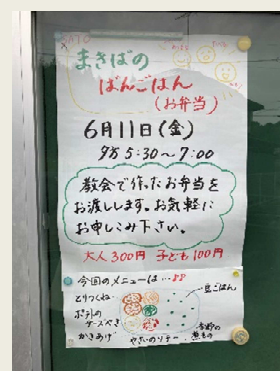 まきばの
ばんごはん
(お弁当)
6月11日(金)
夕方 5:30～7:00
教会で作ったお弁当を
お渡しします。お気軽に
お申しこみ下さい。
大人300円 子ども100円
今回のメニューは…
とりつくね
豆ごはん
ポテトの
チーズやき
かきあげ
やさいのソテー
煮もの